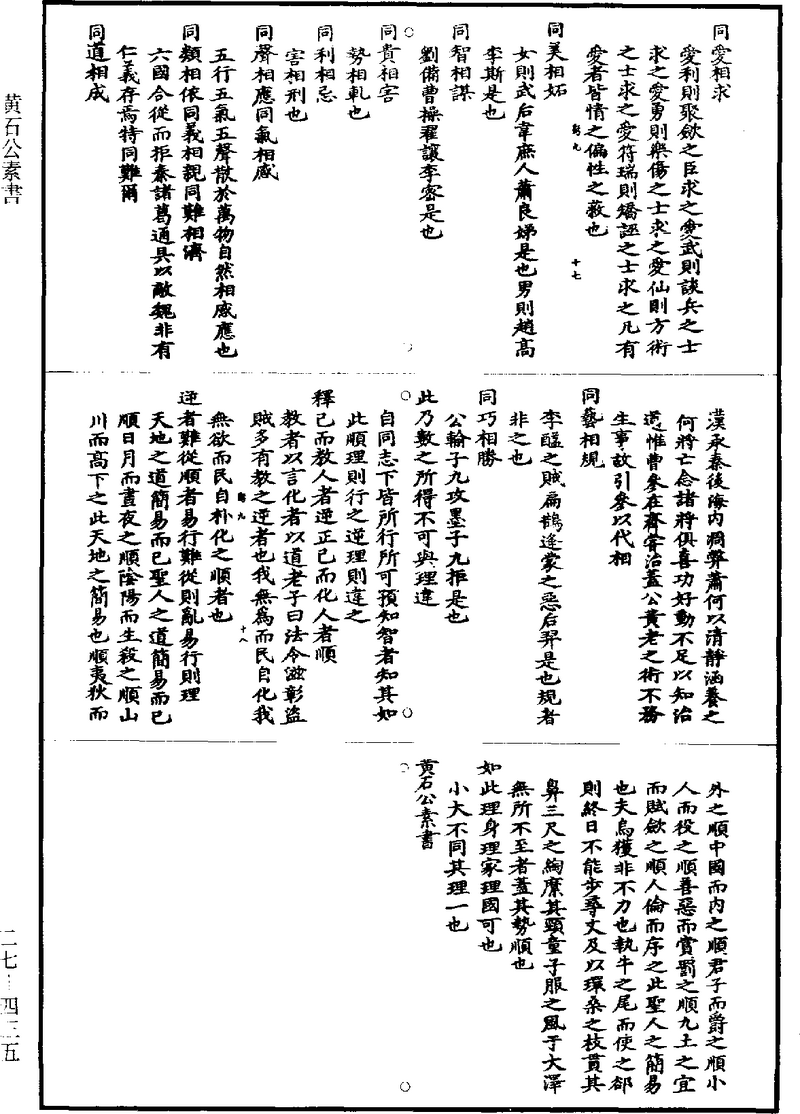 同愛相求
愛利則聚斂之臣求之愛武則談兵之士
求之愛勇則樂傷之士求之愛仙則方術
之士求之愛符瑞則矯誣之士求之凡有
愛者皆情之偏性之蔽也
同美相妬
女則武后韋庶人蕭良娣是也男則趙高
李斯是也
同智相謀
劉備曹操翟讓李密是也
同貴相害
勢相軋也
同利相忌
害相刑也
同聲相應同氣相感
五行五氣五聲散於萬物自然相感應也
同類相依同義相親同難相濟
六國合從而拒秦諸葛通吳以敵魏非有
仁義存焉特同難爾
同道相成
漢承秦後海內凋弊蕭何以清靜涵養之
何將亡念諸將俱喜功好動不足以知治
道惟曹參在齊甞治蓋公黃老之術不務
生事故引參以代相
同藝相規
李醯之賊扁鵲逢蒙之惡后羿是也規者
非之也
同巧相勝
公輸子九攻墨子九拒是也
此乃數之所得不可與理違
自同志下皆所行所可預知智者知其如
此順理則行之逆理則違之
釋己而教人者逆正己而化人者順
教者以言化者以道老子曰法令滋彰盜
賊多有教之逆者也我無爲而民自化我
無欲而民自朴化之順者也
逆者難從順者易行難從則亂易行則理
天地之道簡易而已聖人之道簡易而已
順日月而晝夜之順陰陽而生殺之順山
川而高下之此天地之簡易也順夷狄而
外之順中國而內之順君子而爵之順小
人而役之順善惡而賞罰之順九土之宜
而賦斂之順人倫而序之此聖人之簡易
也夫烏獲非不力也執牛之尾而使之郤
則終日不能步尋丈及以環桑之枝貫其
鼻三尺之綯縻其頸童子服之風于大澤
無所不至者蓋其勢順也
如此理身理家理國可也
小大不同其理一也
黃石公素書
黃石公素書
二七―四三五
十七
十八